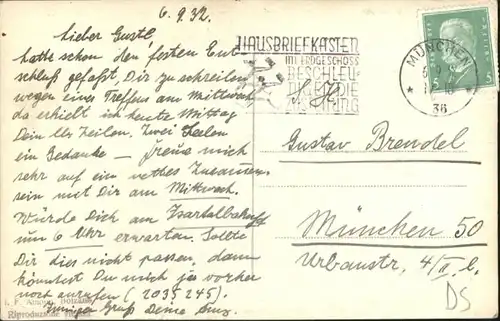 6.9.32.
Lieber Gustl
hatte schon den festen Ent-
schluß gefaßt, Dir zu schreiben
wegen eines Treffens am Mittwoch
da erhielt ich heute Mittag
Dein lb. Zeilen. Zwei Seelen
ein Gedanke – freue mich
sehr auf ein nettes Zusammen-
sein mit Dir am Mittwoch.
Würde Dich am Isartalbahnhf
um 6 Uhr erwarten. Sollte
Dir dies nicht passen, dann
könntest Du mich ja vorher
noch anrufen (203 245).
Gruß Deine
Riproduzione
HAUSBRIEFKASTEN
IM ERDGESCHOSS
BESCHLEU-
NIGEN DIE
MÜNCHEN
36
5
S. H.
Gustav Brendel
München 50
Urbanstr. 4/II l.
DS